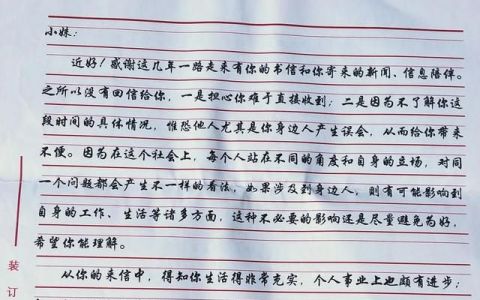 小妹：
近好！感谢这几年一路走来有你的书信和你寄来的新闻、信息陪伴。
之所以没有回信给你，一是担心你难于直接收到；二是因为不了解你这
段时间的具体情况，惟恐他人尤其是你身边人产生误会，从而给你带来
不便。因为在这个社会上，每个人站在不同的角度和自身的立场，对同
一个问题都会产生不一样的看法，如果涉及到身边人，则有可能影响到
自身的工作、生活等诸多方面，这种不必要的影响还是尽量避免为好，
希望你能理解。
从你的来信中，得知你生活得非常充实，个人事业上也颇有进步；
装订